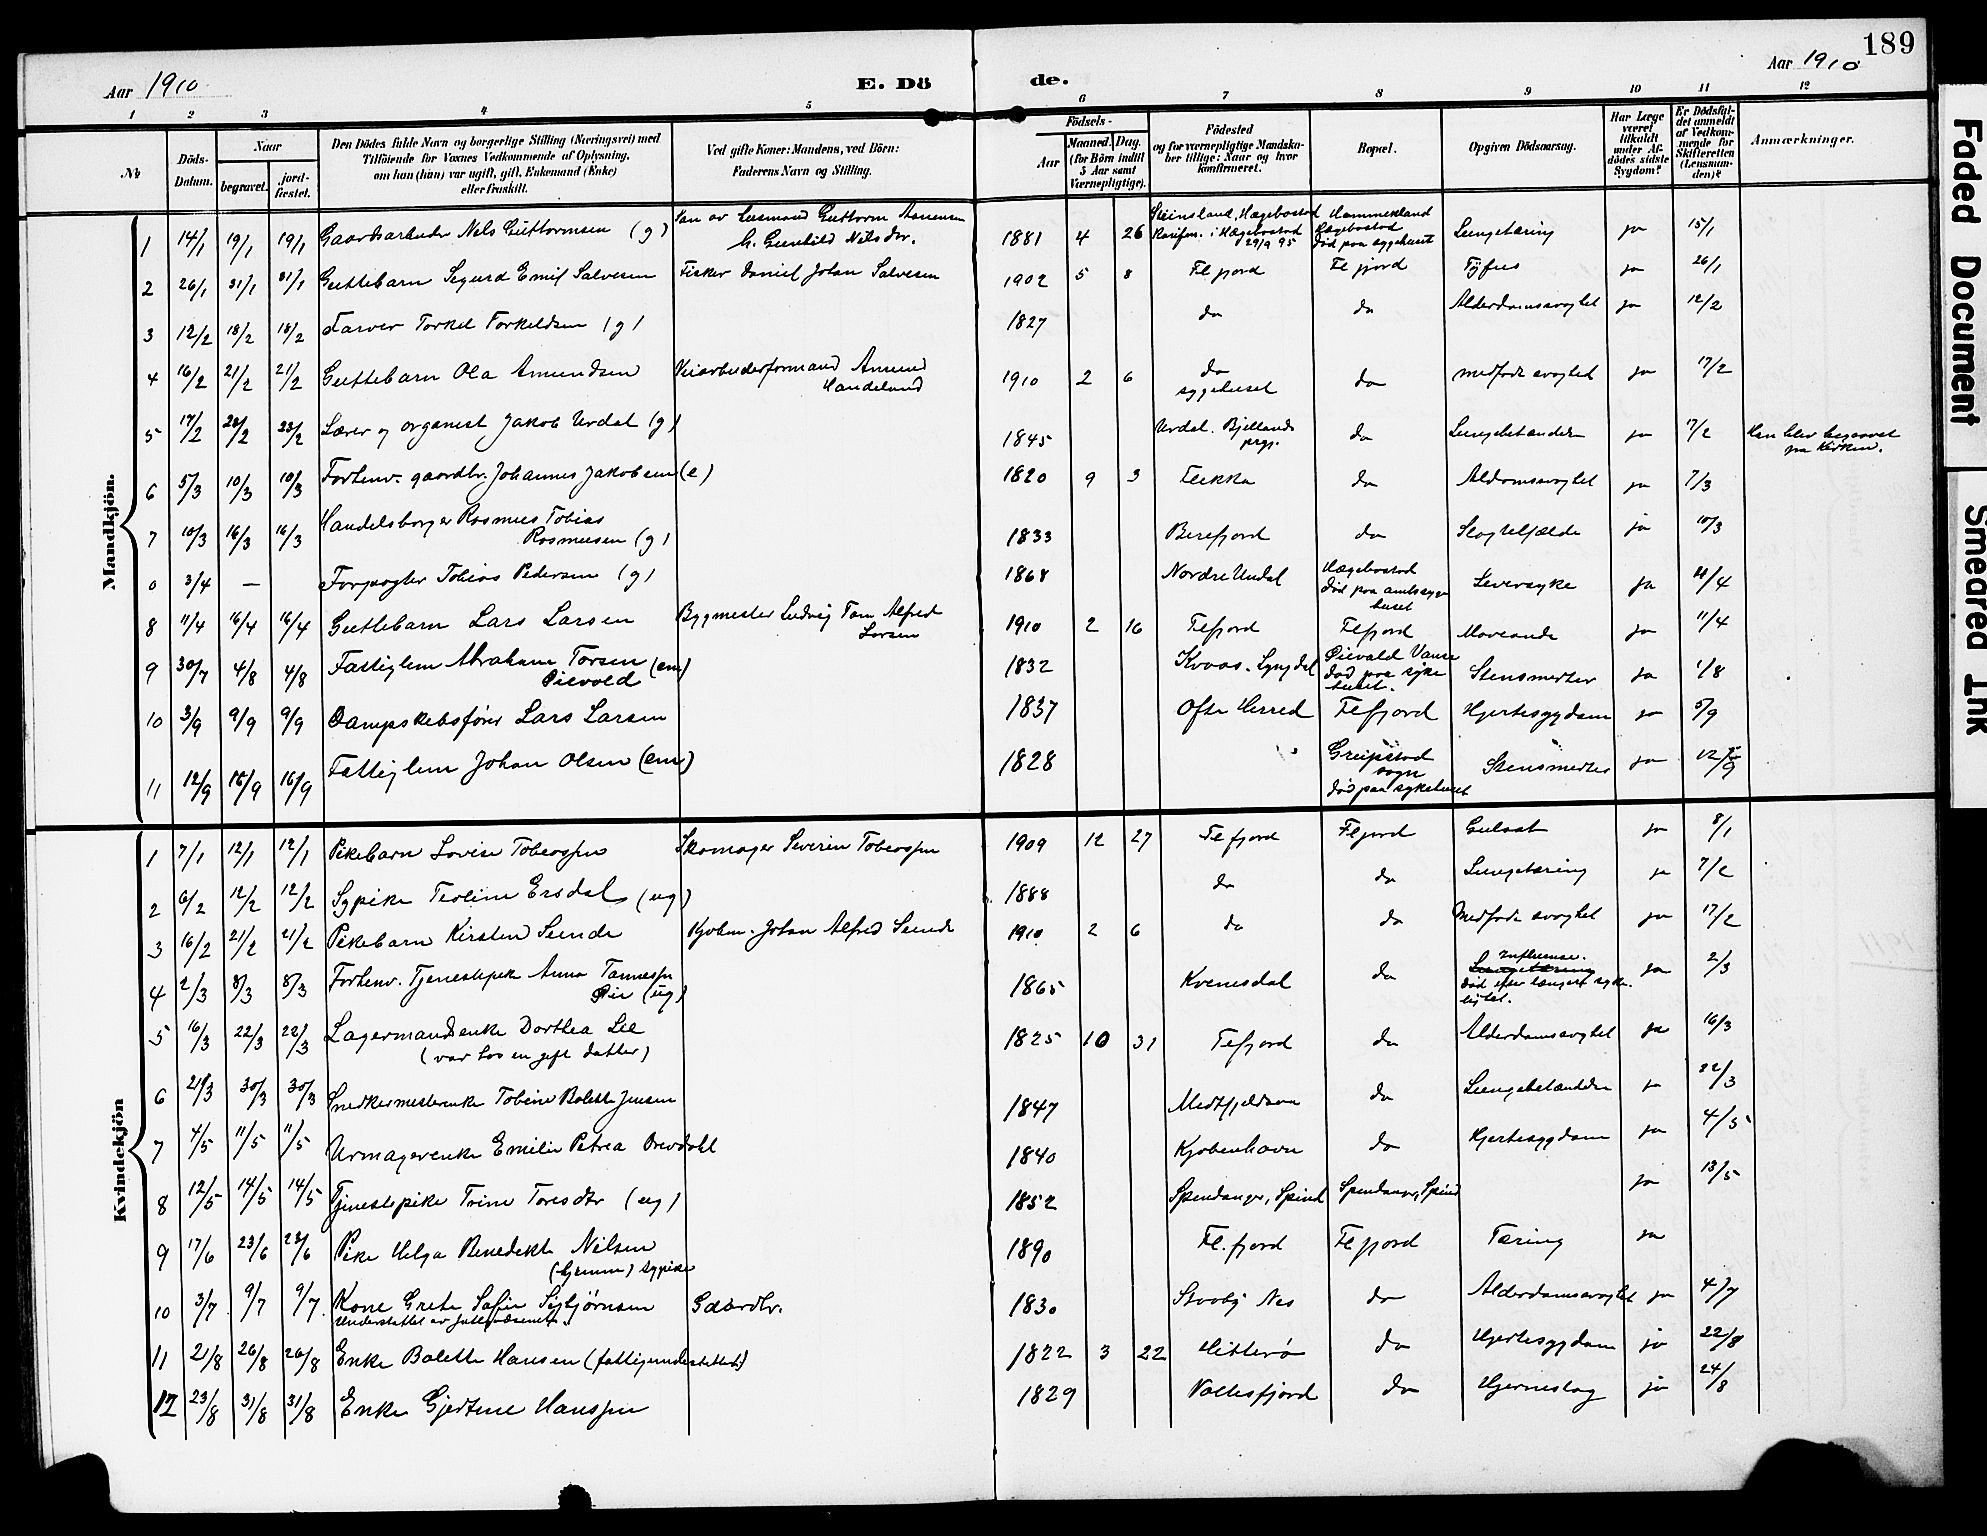 189
Aar 1910
E. Dö
de.
Aar 1910
1 2 3 4 5 6 7 8 9 10 11 12
№
Döds-Datum.
Naar
begravet.
jord-fæstet.
Den Dödes fulde Navn og borgerlige Stilling (Næringsvei) med
Tilföiende for Voxnes Vedkommende af Oplysning,
om han (hun) var ugift, gift, Enkemand (Enke)
eller fraskilt.
Ved gifte Koner: Mandens, ved Börn:
Faderens Navn og Stilling.
Födsels-
Aar
Maaned. Dag.
(for Börn indtil
5 Aar samt
Værnepligtige).
Födested
og for værnepligtige Mandska-
ber tillige: Naar og hvor
konfirmeret.
Bopæl.
Opgiven Dödsaarsag.
Har Læge
været
tilkaldt
under Af-
dödes sidste
Sygdom?
Er Dödsfal-
det anmeldt
af Vedkom-
mende for
Skifteretten
(Lensman-
den)?
Anmærkninger.
Mandkjön.
1 14/1 19/1 19/1 Gaardsarbeider Nils Guttormsen (g) Søn av Guttorm Aanensen
G. Gunhild Nilsdr. 1881 4 26 Steinsland, Hægebostad Hægebostad Lungetæring ja 15/1
Konfm. i Hægebostad død paa sygehuset
29/9 95
2 26/1 31/1 31/1 Guttebarn Sigurd Emil Salvesen Fisker Daniel Johan Salvesen 1902 5 8 Flfjord Flfjord Tyfus ja 26/1
3 12/2 18/2 18/2 Farver Torkel Torkeldsen (g) 1827 do do Alderdomssvaghet ja 12/2
4 16/2 21/2 21/2 Guttebarn Ola Amundsen Veiarbeiderformand Amund
Handeland 1910 2 6 do
sygehuset do medfødt svaghet ja 17/2
5 17/2 23/2 23/2 Lærer og organist Jakob Urdal (g) 1845 Urdal. Bjellands
prgj. do Lungebetændelse ja 17/2 Han blev begravet
fra kirken.
6 5/3 10/3 10/3 Forhenv. gaardbr. Johannes Jakobsen (e) 1820 9 3 Flikka do Aldomssvaghet ja 7/3
7 10/3 16/3 16/3 Handelsborger Rasmus Tobias
Rasmusen (g) 1833 do Slagtilfælde ja 10/3
0 3/4 — Forpagter Tobias Pedersen (g) 1868 Nordre Undal Hægebostad
død paa amtssyge
huset Leversyke ja 4/4
8 11/4 16/4 16/4 Guttebarn Lars Larsen Bygmester Ludvig Tom Alfred
Larsen 1910 2 16 Flfjord Flfjord Maveonde ja 11/4
9 30/7 4/8 4/8 Fattiglem Abraham Torsen (em)
Øievold 1832 Kvaas. Lyngdal Øievald Vanse
død paa syke
huset. Stensmerter ja 1/8
10 3/9 9/9 9/9 Dampskibsfører Lars Larsen 1837 Herred Flefjord Hjertesygdom ja 5/9
11 12/9 16/9 16/9 Fattiglem Johan Olsen (em) 1828 Greipstad
sogn
død paa sykehuset Stensmerter ja 12/9
Kvindekjön
1 7/1 12/1 12/1 Pikebarn Lovise Tobiassen Skomager Severin Tobiassen 1909 12 27 Flefjord Flfjord Gulsot ja 8/1
2 6/2 12/2 12/2 Sypike Teoline Ersdal (ug) 1888 do do Lungetæring ja 7/2
3 16/2 21/2 21/2 Pikebarn Kirsten Sunde Kjøbm. Johan Alfred Sunde 1910 2 6 do do Medfødt svaghet ja 17/2
4 2/3 8/3 8/3 Forhenv. Tjenestepike Anna Tannessen
Øie (ug) 1865 Kvinesdal do Influensa.
Lungetæring
død efter længere syke-
lighet. ja 2/3
5 16/3 22/3 22/3 Lagermandsenke Dorthea Lie
(var hos en gift datter) 1825 10 31 Flefjord do Alderdomssvaghet ja 16/3
6 21/3 30/3 30/3 Snedkermesterenke Tobine Bolette Jensen 1847 do Lungebetændelse ja 22/3
7 4/5 11/5 11/5 Urmagerenke Emilie Petrea Drevdahl 1840 Kjøbenhavn do Hjertesygdom ja 4/5
8 12/5 14/5 14/5 Tjenestepike Trine Toresdtr (ug) 1852 Spindanger, Spind Spindanger, Spind ja 13/5
9 17/6 23/6 23/6 Pike Helga Benedikte Nilsen
(hjemme) sypike 1890 Fl.fjord Flfjord Tæring ja
10 3/7 9/7 9/7 Kone Grete Sofie Sigbjørnsen
Understøttet av fattigvæsenet. Gaardbr. 1830 Nes do Alderdomssvaghet ja 4/7
11 21/8 26/8 26/8 Enke Bolette Hansen (fattigunderstøttet) 1822 3 22 Hitterø do Hjertesygdom ja 22/8
12 23/8 31/8 31/8 Enke Gjertine Hanssen 1829 do Hjerneslag ja 24/8
Faded Document
Smeared Ink